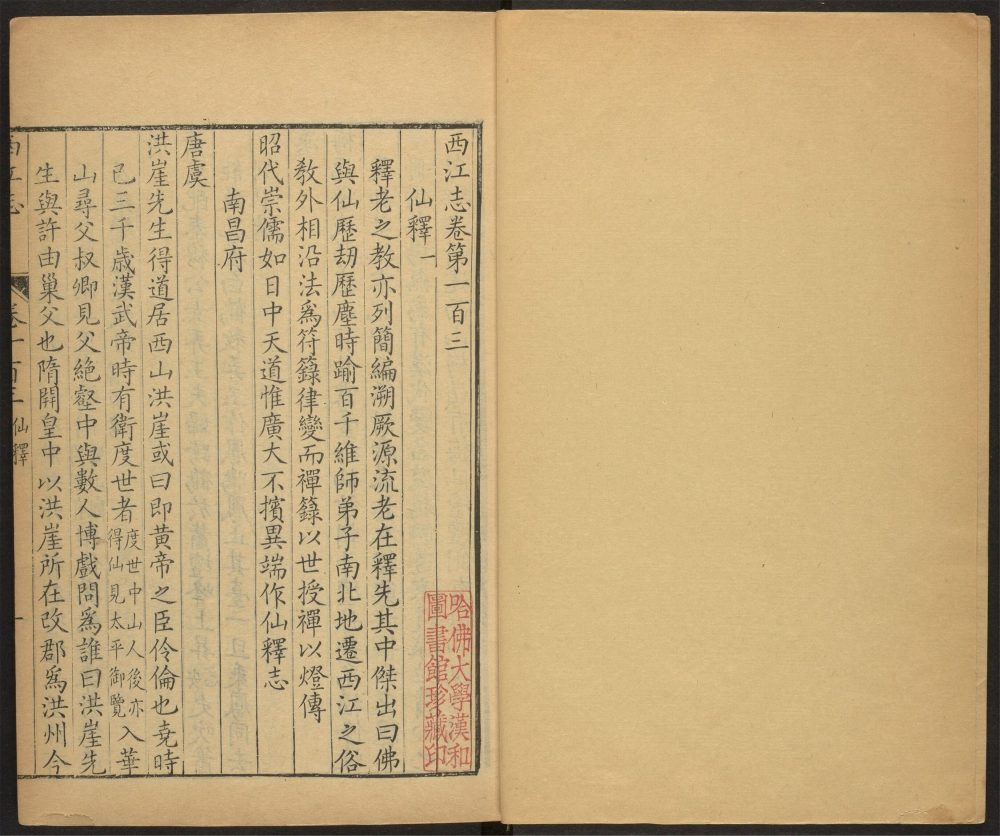 西江志卷第一百三
仙釋一
釋老之教亦列簡編溯厥源流老在釋先其中傑出曰佛
與仙歷劫歷塵時踰百千維師弟子南北地遷西江之俗
教外相沿法爲符籙律變而禪籙以世授禪以燈傳
昭代崇儒如日中天道惟廣大不擯異端作仙釋志
南昌府
唐虞
洪崖先生得道居西山洪崖或曰即黃帝之臣伶倫也堯時
已三千歲漢武帝時有衛度世者度世中山人後亦得仙見太平御覽入華
山尋父叔卿見父絕壑中與數人博戲問爲誰曰洪崖先
生與許由巢父也隋開皇中以洪崖所在改郡爲洪州今
西江志 卷一百三 仙釋 一
哈佛大學漢和
圖書館珍藏印